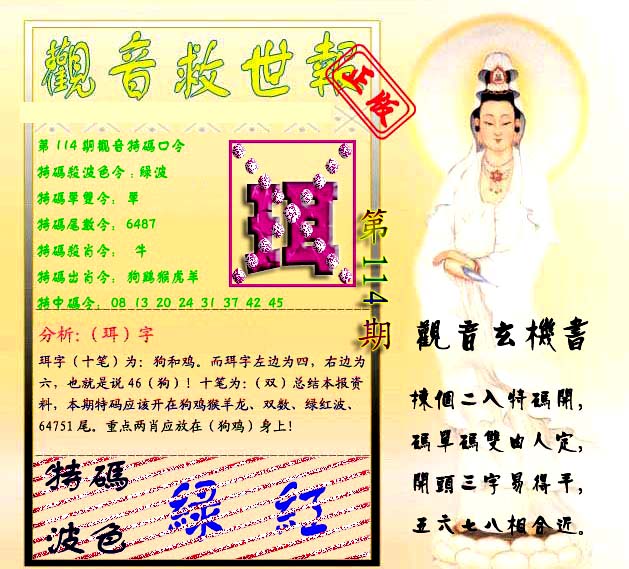 觀音救世報
正版
第114期觀音特碼口令
特碼殺波色令：綠波
特碼單雙令： 單
特碼尾數令： 6487
特碼殺肖令： 牛
特碼出肖令： 狗鷄猴虎羊
特中碼令： 08 13 20 24 31 37 42 45
珥
第114期
分析：（珥）字
珥字（十笔）为：狗和鸡。而珥字左边为四，右边为
六，也就是说46（狗）！十笔为：（双）总结本报资
料，本期特码应该开在狗鸡猴羊龙、双数、绿红波、
64751尾。重点两肖应放在（狗鸡）身上！
特碼
波色
綠 紅
觀音玄機書
揀個二入特碼開，
碼單碼雙由人定，
開頭三字易得平，
五六七八相合近。